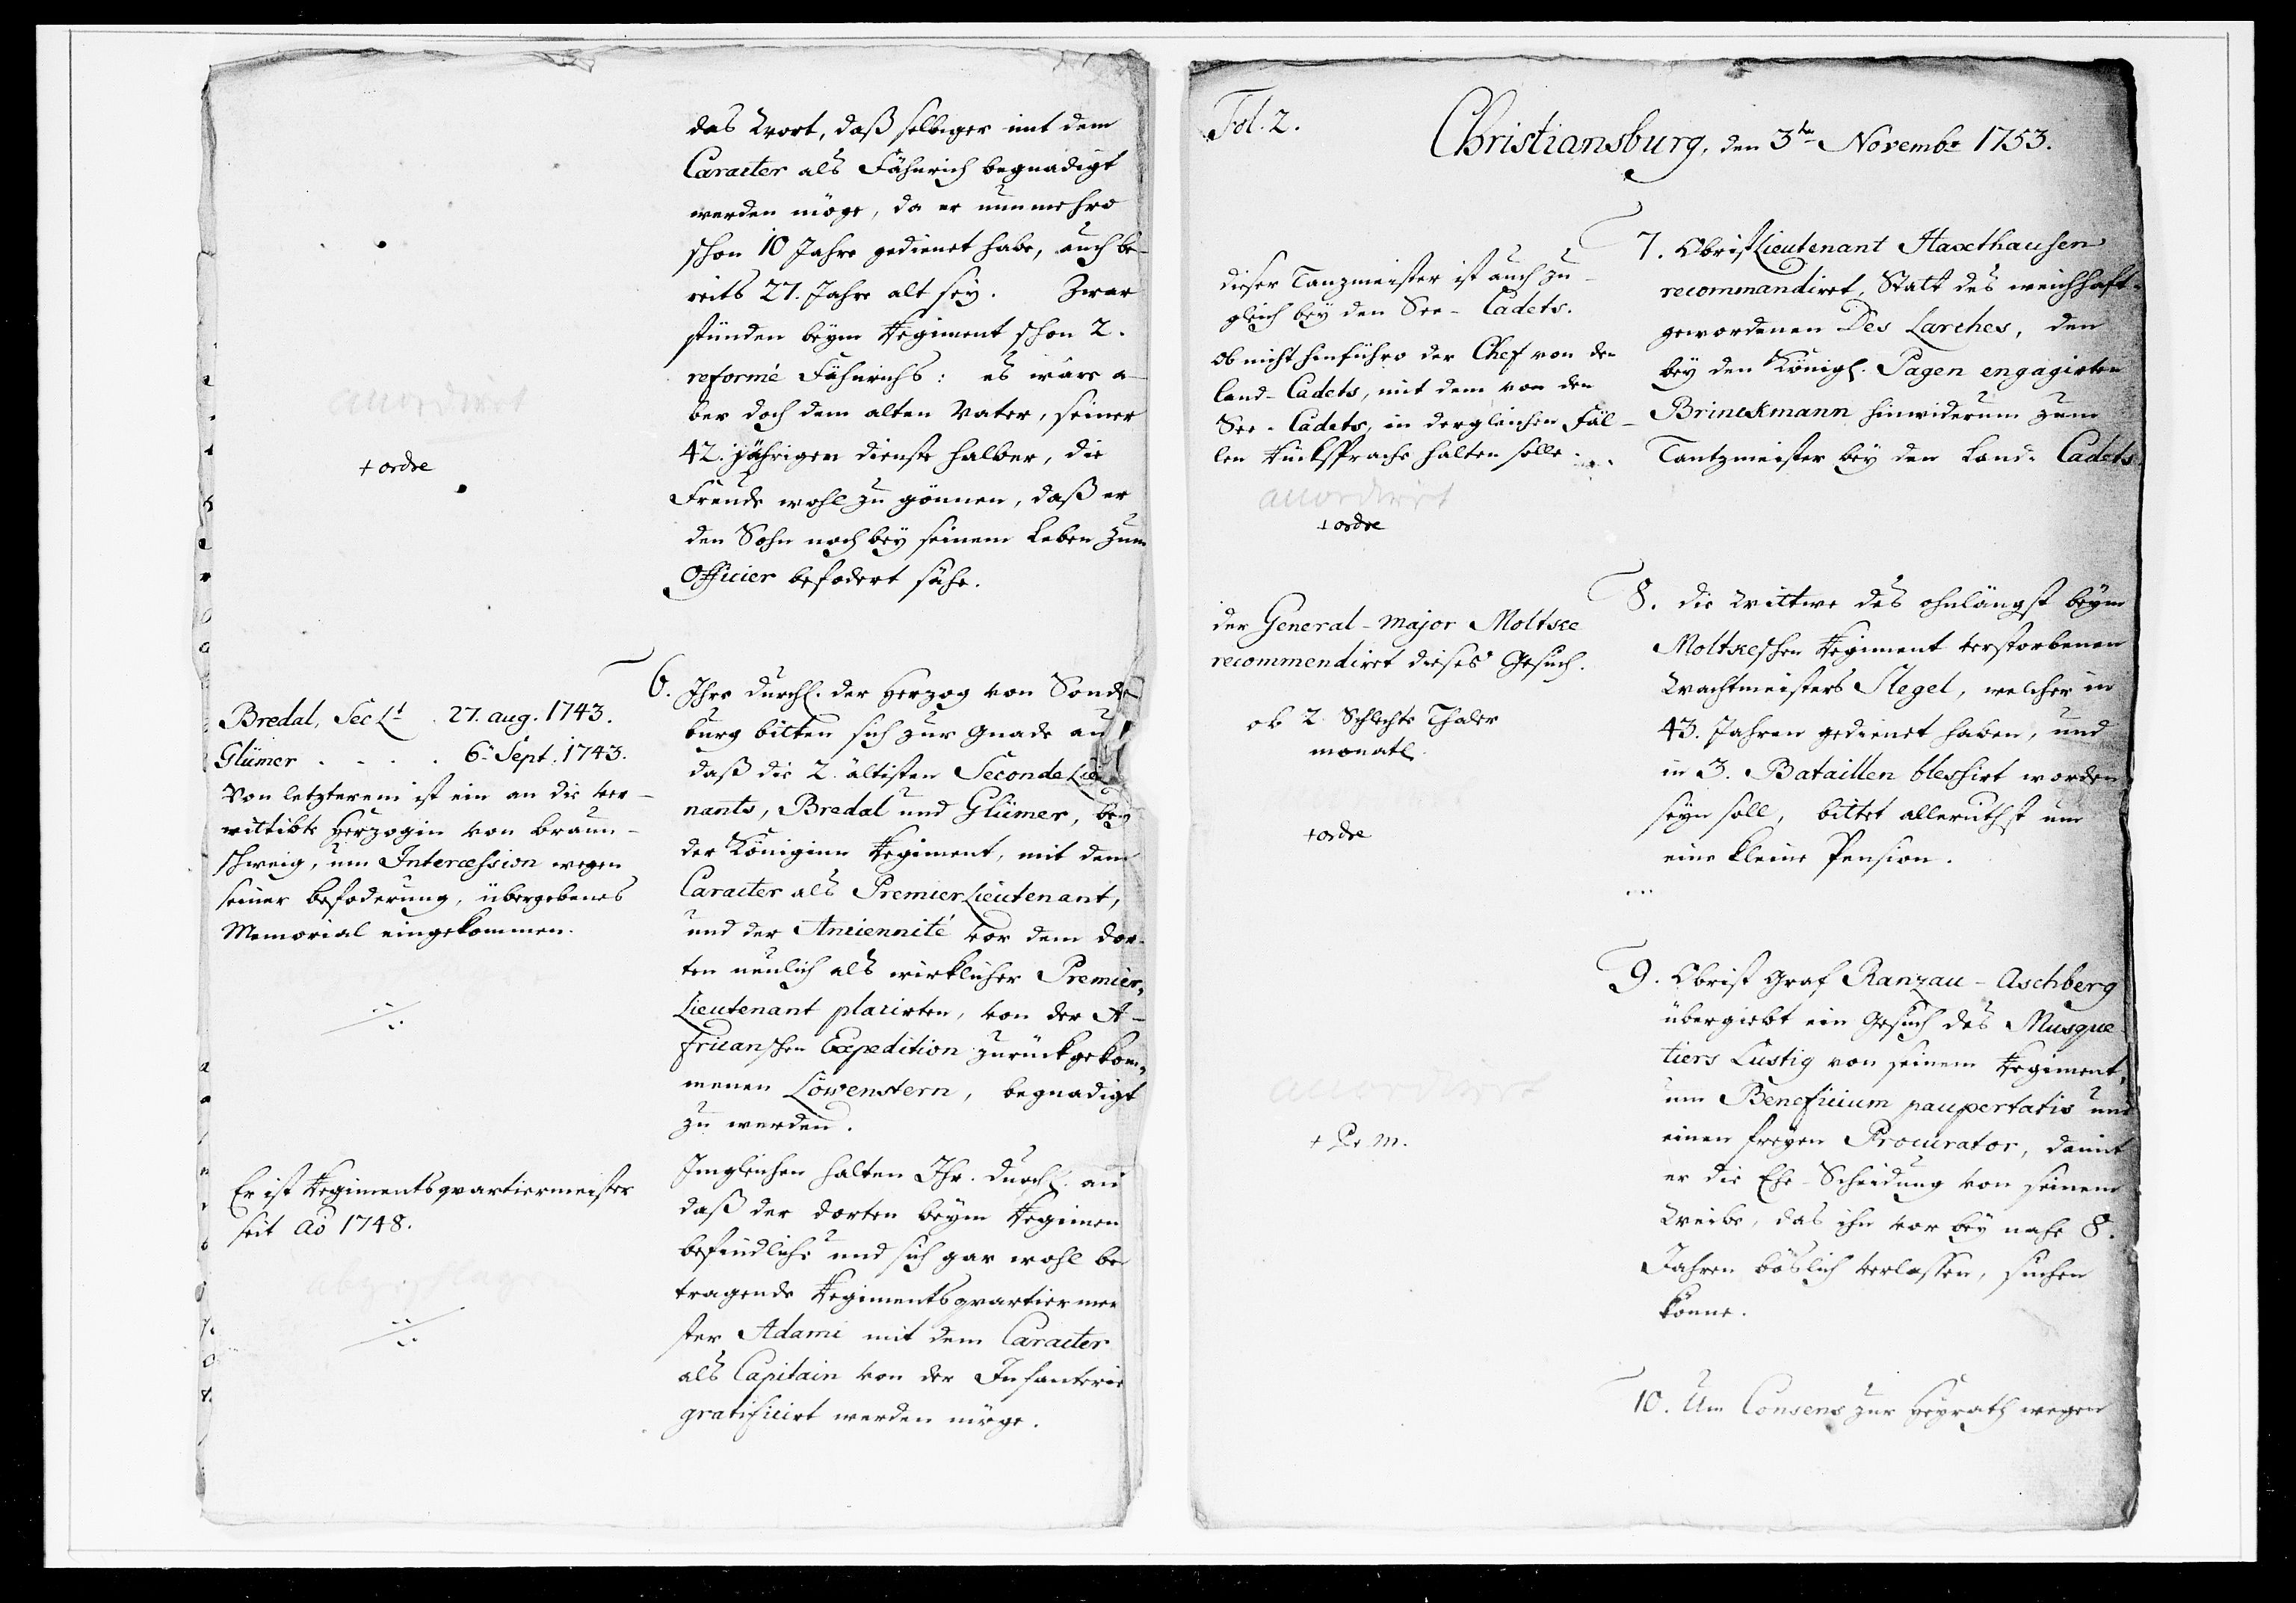 das Wort, daß selbiger mit dem
Caracter als Fähnrich begnadigt
werden möge, da er nunmehro
schon 10 Jahre gedienet habe, auch be-
reits 27. Jahre alt sey. Zwar
stünden beym Regiment schon 2.
reformé Fähnrichs: es wäre a-
ber doch dem alten Vater, seiner
42. jährigen dienste halber, die
Freude wohl zu gönnen, daß er
den Sohn noch bey seinem Leben zum
Officier befodert sähe.
accordirt
+ ordre
6. Ihro Durchl. der Herzog von Sonder
burg bitten sich zur Gnade aus
daß die 2. ältisten Seconde Lieute
nants, Bredal und Glümer, bey
der Königinn Regiment, mit dem
Caracter als Premier Lieutenant,
und der Anciennité vor dem dor-
ten neulich als wirklicher Premier-
Lieutenant placirten, von der A-
fricanschen Expedition zurückgekom-
menen Löwenstern, begnadigt
zu werden.
Bredal, Sec Lt. 27. aug. 1743.
Glümer . . . . 6. Sept. 1743.
Von letzterem ist ein an die ver-
wittibte Herzogin von Braun-
schweig, um Intercession wegen
seiner Befoderung, übergebenes
Memorial eingekommen.
Imgleichen halten Ihr. Durchl. an
daß der dorten beym Regimen
befindliche und sich gar wohl be
tragende Regimentsquartiermei
ster Adami mit dem Caracter
als Capitain von der Infanterie
gratificirt werden möge.
Er ist Regimentsquartiermeister
seit Ao 1748.
abgeschlagen
Fol. 2.
Christiansburg, den 3ten Novembr 1753.
7. Obrist Lieutenant Haxthausen
recommandiret, Statt des
gewordenen Des Larches, den
bey den Königl. Pagen engagirten
Brinckmann hinwiderum zum
Tantzmeister bey den Land-Cadets.
dieser Tanzmeister ist auch zu-
gleich bey den See-Cadets.
Ob nicht hinführo der Chef von den
Land-Cadets, mit dem von den
See-Cadets, in dergleichen Fäl-
len Rücksprache halten solle.
accordirt
+ ordre
8. die Wittwe des ohnlängst beym
Moltkeschen Regiment verstorbenen
Wachtmeisters Slegel, welcher in
43. Jahren gedienet haben, und
in 3. Bataillen blessirt worden
seyn soll, bittet allerunthst um
eine kleine Pension.
der General-Major Moltke
recommendiret dieses Gesuch.
ob 2 Schlechte Thaler
monatl.
+ ordre
9. Obrist Graf Ranzau-Aschberg
übergiebt ein Gesuch des Musque
tiers Lustig von seinem Regiment,
um Beneficium paupertatis und
einen freyen Procurator, damit
er die Ehe-Scheidung von seinem
Weibe, das ihn vor bey nahe 8.
Jahren böslich verlassen, suchen
könne.
accordirt
+ P. M.
10. Um Consens zur Heyrath wegen